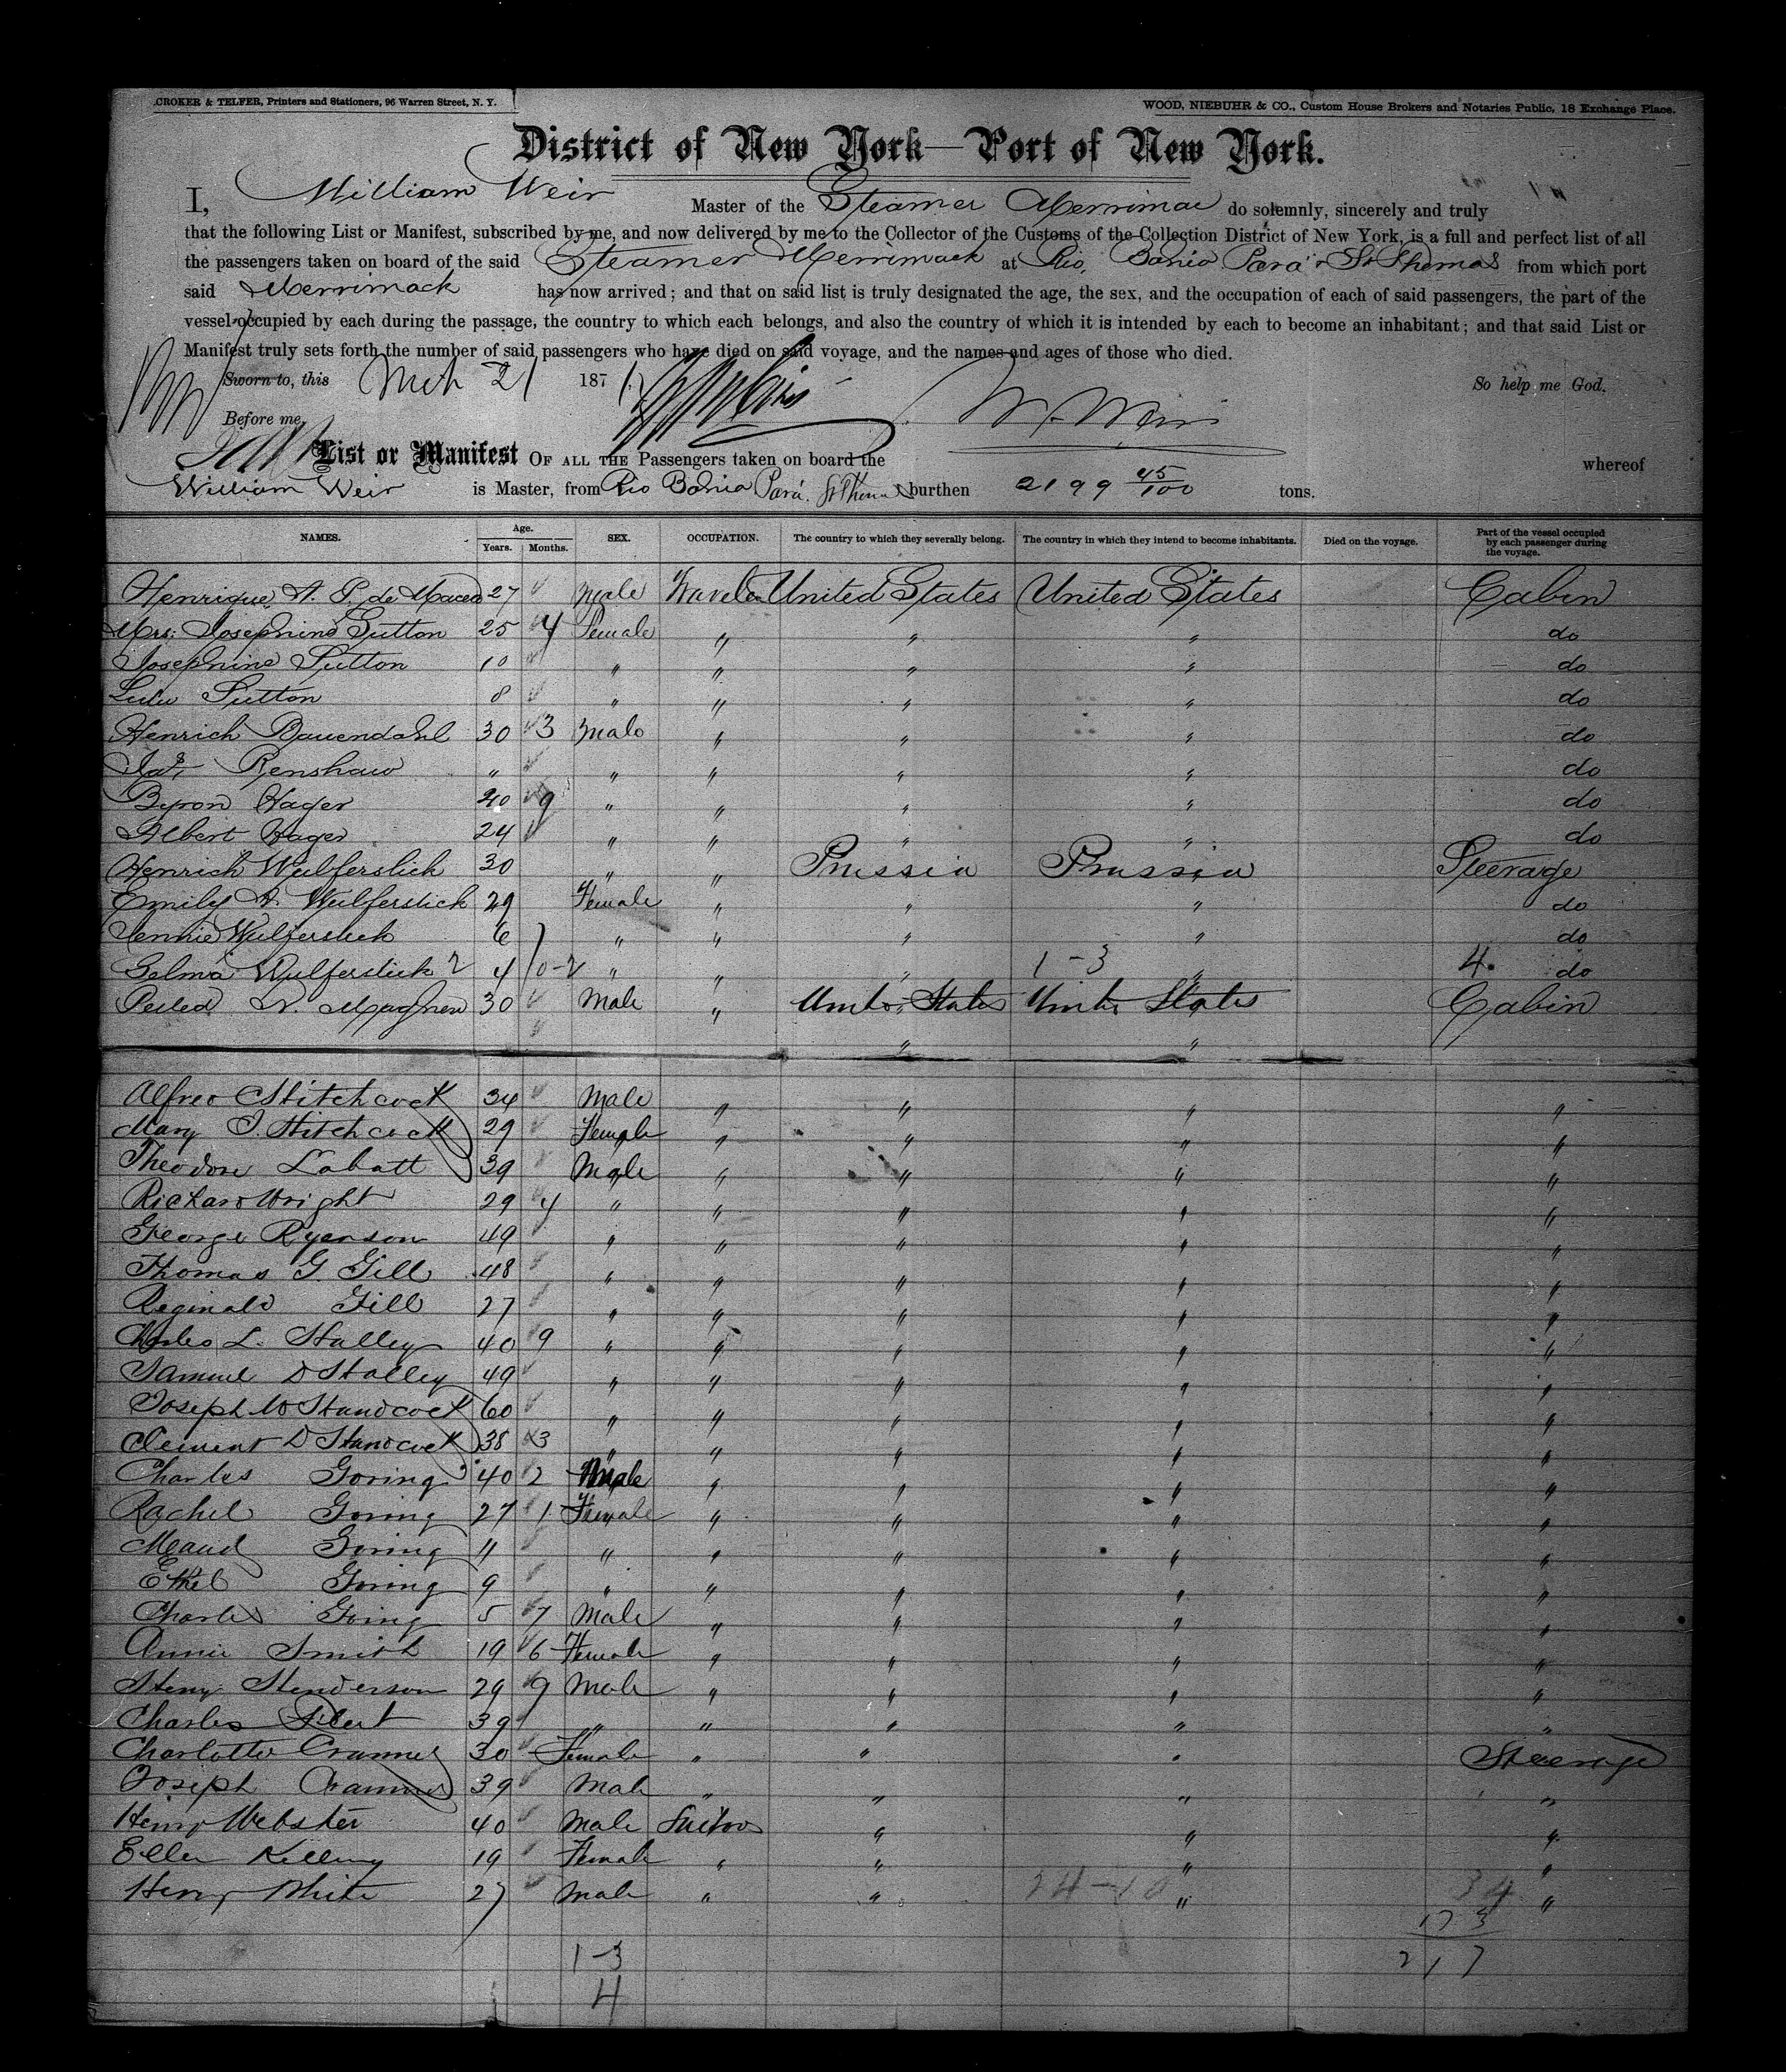 CROKER & TELFER, Printers and Stationers, 96 Warren Street, N. Y.
WOOD, NIEBUHR & CO., Custom House Brokers and Notaries Public, 18 Exchange Place.
District of New York—Port of New York.
I, William Weir Master of the Steamer Merrimac do solemnly, sincerely and truly
that the following List or Manifest, subscribed by me, and now delivered by me to the Collector of the Customs of the Collection District of New York, is a full and perfect list of all
the passengers taken on board of the said Steamer Merrimack at Rio, Bahia Para & St Thomas from which port
said Merrimack has now arrived; and that on said list is truly designated the age, the sex, and the occupation of each of said passengers, the part of the
vessel occupied by each during the passage, the country to which each belongs, and also the country of which it is intended by each to become an inhabitant; and that said List or
Manifest truly sets forth the number of said passengers who have died on said voyage, and the names and ages of those who died.
Sworn to, this Mch 21 1871 So help me God.
Before me, W. Weir
List or Manifest OF ALL THE Passengers taken on board the whereof
William Weir is Master, from Rio Bahia Pará. St Thomas burthen 2199 45/100 tons.
NAMES. Age. Years. Months. SEX. OCCUPATION. The country to which they severally belong. The country in which they intend to become inhabitants. Died on the voyage. Part of the vessel occupied by each passenger during the voyage.
Henrique A. P. de Macedo 27 Male United States United States Cabin
Mrs. Josephine Sutton 25 4 Female " " " do
Josephine Sutton 10 " " " " do
Lulu Sutton 8 " " " " do
Henrich Bauendahl 30 3 Male " " " do
Renshaw " " " " " do
Byron Hager 40 9 " " " " do
Albert Hager 24 " " " " do
Henrich Wulferslick 30 " " Prussia Prussia Steerage
Emily A. Wulferslick 29 Female " " " do
Jennie Wulferslick 6 " " " " do
Selma Wulferslick 4 10-2 " " " 1-3 " 4. do
N. 30 Male " United States United States Cabin
" "
Alfred Hitchcock 34 Male " " " "
Mary J. Hitchcock 29 Female " " " "
Theodore Labatt 39 Male " " " "
Richard Wright 29 4 " " " " "
George Ryerson 49 " " " " "
Thomas G Gill 48 " " " " "
Reginald Gill 27 " " " " "
Charles L. Halley 40 9 " " " " "
Samuel D Halley 49 " " " " "
Joseph W Handcock 60 " " " " "
Clement D Handcock 38 3 " " " " "
Charles Goring 40 2 Male " " " "
Rachel Goring 27 1 Female " " " "
Maud Goring 11 " " " " "
Ethel Goring 9 " " " " "
Charles Goring 5 7 Male " " " "
Annie Smith 19 6 Female " " " "
Henry Henderson 29 9 Male " " " "
Charles 39 " " " " "
Charlotte Crammer 30 Female " " " Steerage
Joseph Crammer 39 Male " " " "
Henry Webster 40 Male " " "
Ellen 19 Female " " " "
Henry White 27 Male " " 24-10 " 34 "
173
1-3 217
4